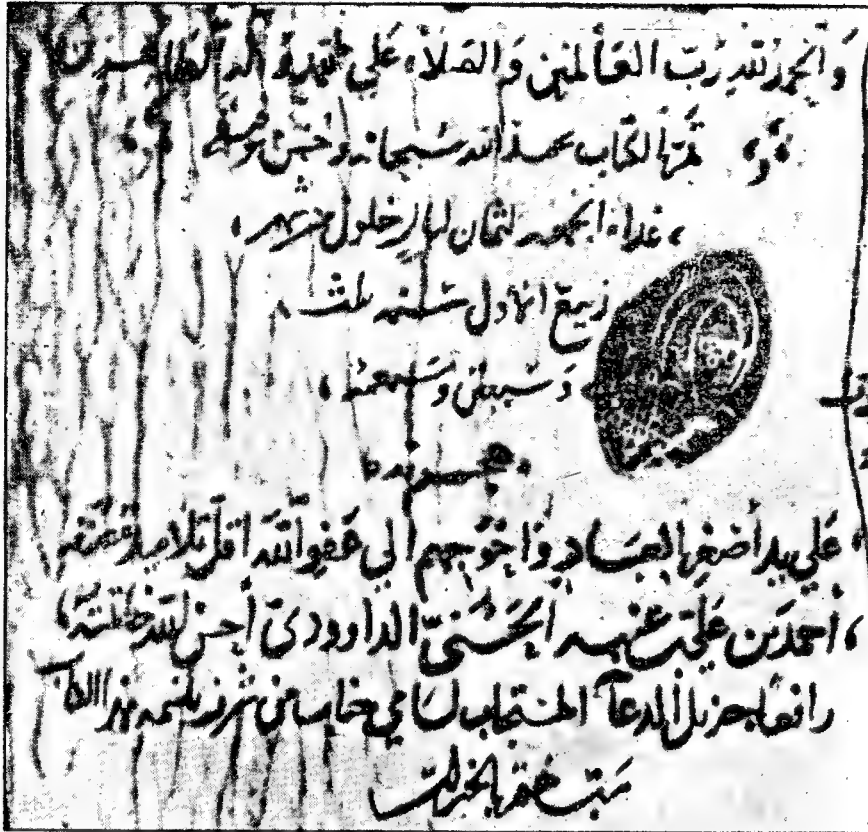 والحمد لله رب العالمين والصلاة على محمد وآله الطاهرين
تم الكتاب بحمد الله سبحانه وحسن توفيقه
غداة الجمعة لثمان ليال خلون من شهر
ربيع الاول سنة ثلث
وسبعين وسبعمئة
هجرية
علي يد أضعف العباد وأحوجهم الي عفو الله اقل تلاميذ مصنفه
أحمد بن علي بن عنبه الحسني الداوودي أحسن الله خاتمته
رافعا جزيل الدعاء المستجاب لسامي جناب من شرف بلثمه هذا الكتاب